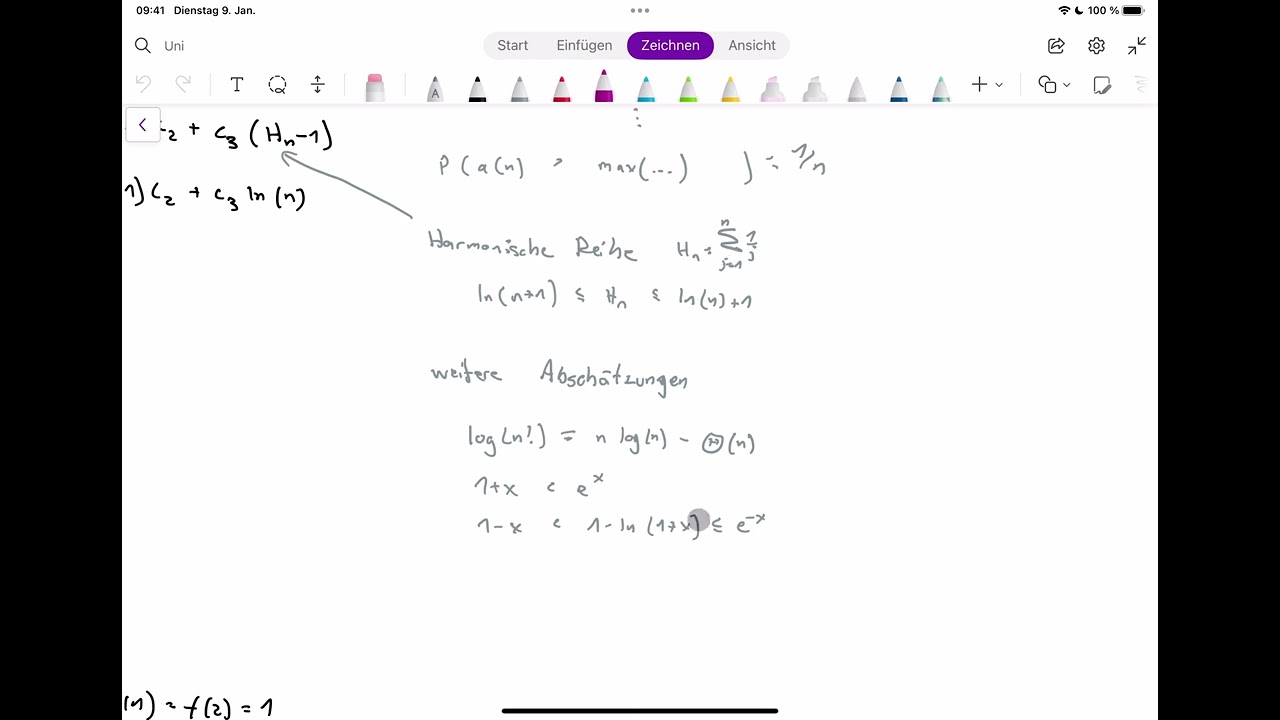 09:41 Dienstag 9. Jan. 100 %
Uni Start Einfügen Zeichnen Ansicht
T A
c₂ + c₃ (Hₙ-1)
1)c₂ + c₃ ln(n)
⋮
P(a(n) > max(...) ) = 1/n
Harmonische Reihe Hₙ = ∑ⁿⱼ₌₁ 1/j
ln(n+1) ≤ Hₙ ≤ ln(n)+1
weitere Abschätzungen
log(n!) = n log(n) - Θ(n)
1+x < eˣ
1-x < 1-ln(1+x) ≤ e⁻ˣ
(1) = f(2) = 1